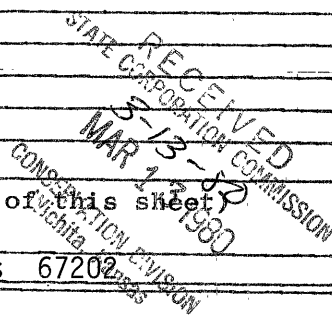 RECEIVED
STATE CORPORATION COMMISSION
3-13-80
MAR 13 1980
CONSERVATION DIVISION
Wichita, Kansas
of this sheet)
s 67202